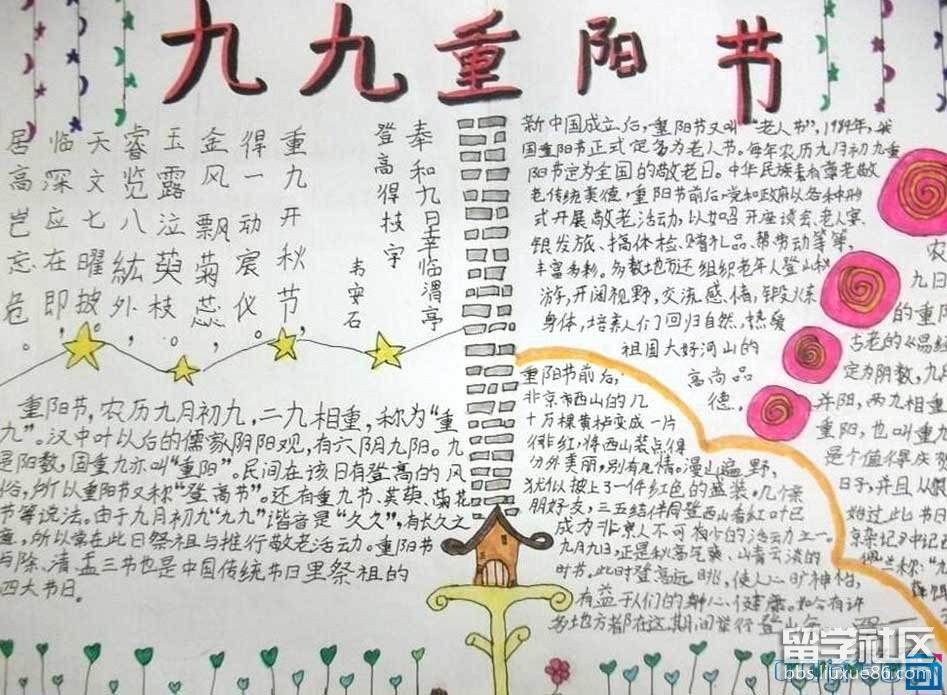 九九重阳节
奉和九日幸临渭亭
登高得枝字
韦安石
重九开秋节，
得一动宸仪。
金风飘菊蕊，
玉露泣萸枝。
睿览八紘外，
天文七曜披。
临深应在即，
居高岂忘危。
重阳节，农历九月初九，二九相重，称为“重
九”。汉中叶以后的儒家阴阳观，有六阴九阳。九
是阳数，固重九亦叫“重阳”。民间在该日有登高的风
俗，所以重阳节又称“登高节”。还有重九节、茱萸、菊花
节等说法。由于九月初九“九九”谐音是“久久”，有长久之
意，所以常在此日祭祖与推行敬老活动。重阳节
与除、清、盂三节也是中国传统节日里祭祖的
四大节日。
新中国成立后，重阳节又叫“老人节”，1989年，我
国重阳节正式定名为老人节。每年农历九月初九重
阳节定为全国的敬老日。中华民族素有尊老敬
老传统美德，重阳节前后，党和政府以各种形
式开展敬老活动，以如召开座谈会、老人宴、
银发旅、搞体检、赠礼品、帮劳动等等，
丰富多彩。多数地方还组织老年人登山秋
游，开阔视野，交流感情，锻炼
身体，培养人们回归自然，热爱
祖国大好河山的
高尚品
德。
重阳节前后，
北京市西山的几
十万棵黄栌变成一片
绯红，将西山装点得
分外美丽，别有风情。漫山遍野，
犹似披上了一件红色的盛装。几个亲
朋好友，三五结伴同登西山看红叶已
成为北京人不可
九月九日，正是秋高气爽，山青云淡的
时节。此时登高远眺，使人心旷神怡，
有益于人们的身心健康。如今有许
多地方都在这期间举行登山
农
九日
的重阳
古老的《易经
定为阴数，九
并阳，两九相重
重阳，也叫重九
是个值得庆
日子，并且从
始过此节日
留学社区
bbs.liuxue86.com